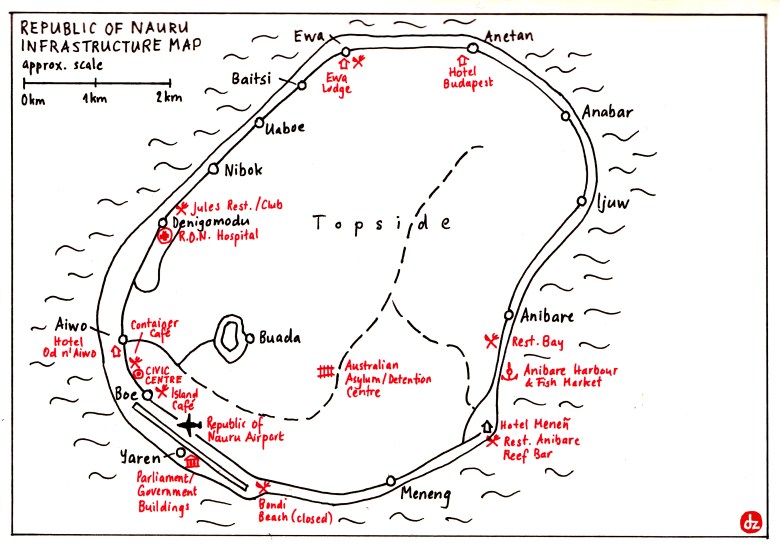 REPUBLIC OF NAURU
INFRASTRUCTURE MAP
approx. scale
0km 1km 2km
Ewa
Anetan
Ewa
Lodge
Hotel
Budapest
Baitsi
Anabar
Uaboe
Nibok
Ijuw
Jules Rest./Club
Denigomodu
R.O.N. Hospital
Topside
Aiwo
Hotel
Od n'Aiwo
Container
Café
Buada
Anibare
Rest. Bay
CIVIC
CENTRE
Australian
Asylum/Detention
Centre
Anibare Harbour
& Fish Market
Boe
Island
Café
Republic of
Nauru Airport
Hotel Meneñ
Rest. Anibare
Reef Bar
Yaren
Parliament/
Government
Buildings
Meneng
Bondi
Beach (closed)
dz